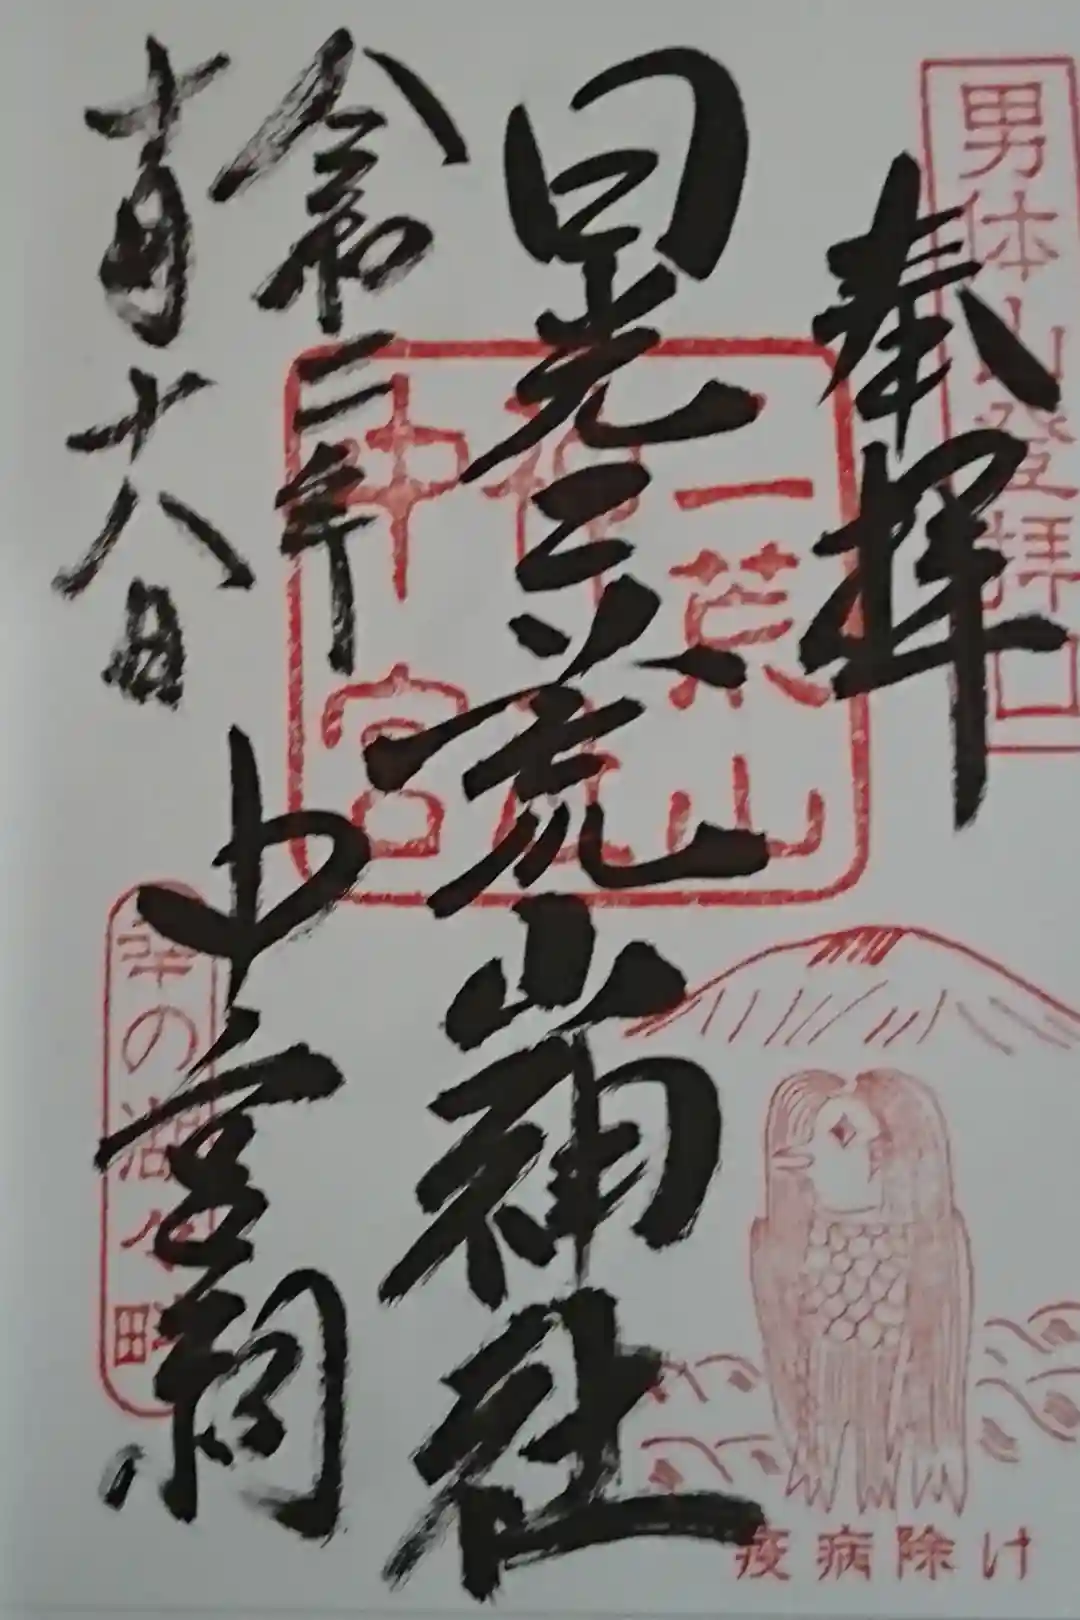 男体山登拝口
奉拝
日光二荒山神社
中宮祠
令和二年
十月十八日
二荒山神社中宮
幸の湖
疫病除け